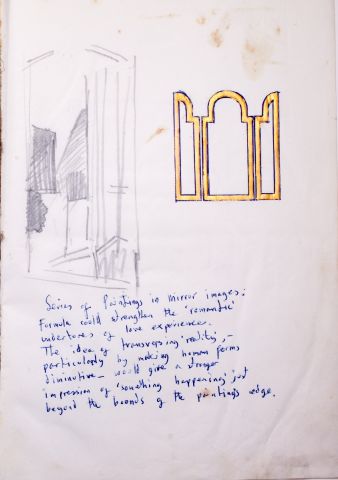 Series of Paintings in mirror images:
Formula could strengthen the 'romantic'
undertones of love experience.
The idea of transversing 'reality', –
particularly by making human forms
diminutive – would give a stronger
impression of 'something happening' just
beyond the bounds of the painting's edge.